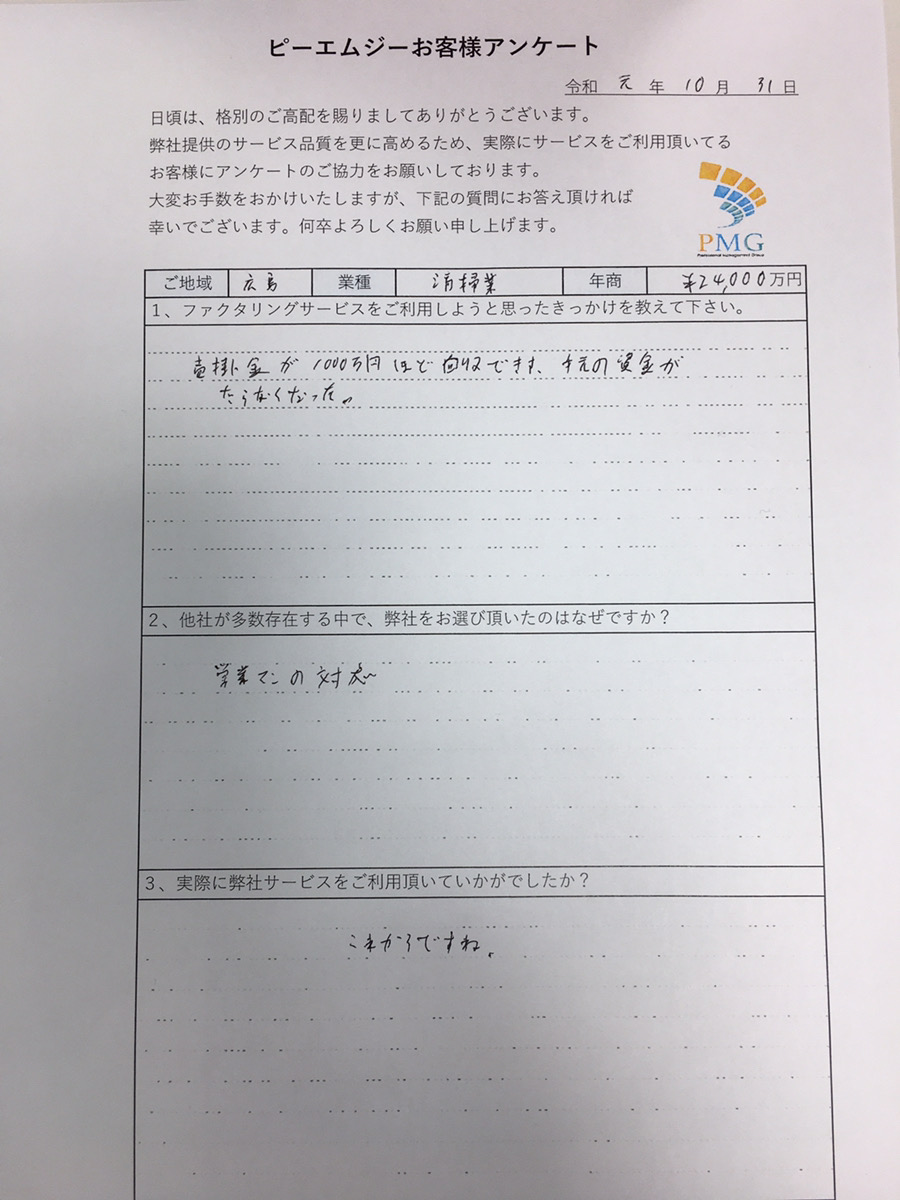 ピーエムジーお客様アンケート
令和 元 年 10 月 31 日
日頃は、格別のご高配を賜りましてありがとうございます。
弊社提供のサービス品質を更に高めるため、実際にサービスをご利用頂いてる
お客様にアンケートのご協力をお願いしております。
大変お手数をおかけいたしますが、下記の質問にお答え頂ければ
幸いでございます。何卒よろしくお願い申し上げます。
PMG
ご地域 広島 業種 清掃業 年商 ¥24,000万円
1、ファクタリングサービスをご利用しようと思ったきっかけを教えて下さい。
売掛金が1000万円ほど回収できず、手元の資金が
たらなくなった。
2、他社が多数存在する中で、弊社をお選び頂いたのはなぜですか？
営業マンの対応
3、実際に弊社サービスをご利用頂いていかがでしたか？
これからですね。